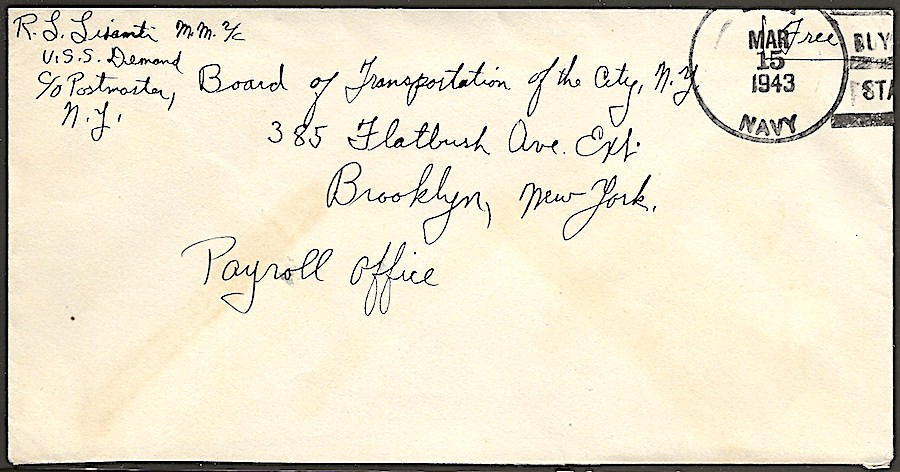 R. L. Lisanti M.M. 2/c
U.S.S. Demand
c/o Postmaster,
N.Y.
Board of Transportation of the City, N.Y.
385 Flatbush Ave. Ext.
Brooklyn, New York.
Payroll Office
Free
MAR
15
1943
NAVY
BUY
STA